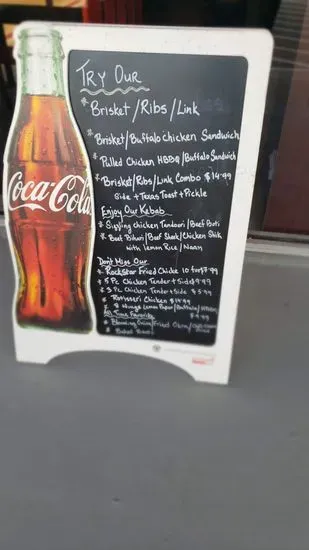 Coca-Cola
Try Our
* Brisket/Ribs/Link
* Brisket/Buffalo chicken Sandwich
* Pulled Chicken HBBQ/Buffalo Sandwich
* Brisket/Ribs/Link Combo $14.99
Side + Texas Toast + Pickle
Enjoy Our Kebab
* Sizzling chicken Tandoori/Beef Boti
* Beef Bihari/Beef Shesh/Chicken Shish
with lemon Rice/Naan
Don't Miss Our
* Rockstar Fried Chicke 10 for $7.99
* 5 Pc Chicken Tender + Side $9.99
* 3 Pc Chicken Tender + Side $5.99
* Rotisseri Chicken $14.99
* Wings Lemon Peper/Buffalo/
All Time Favorite $4.99
* Blooming Onion/Fried Okra/